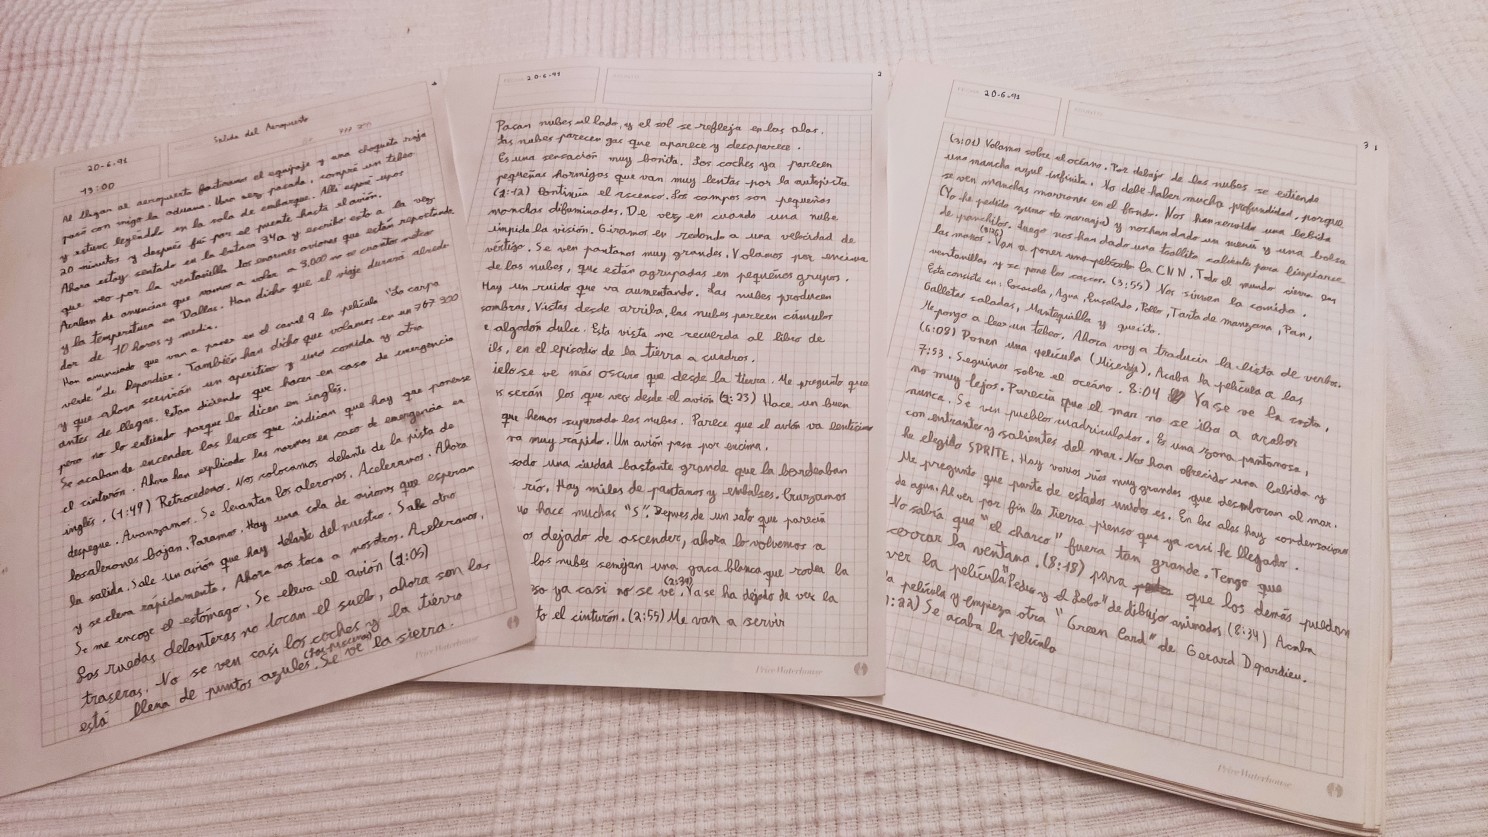 Salida del Aeropuerto
20-6-91
13:00
Al llegar al aeropuerto facturamos el equipaje y una chaqueta roja
pasó con migo la aduana. Una vez pasada, compré un tebeo
y estuve leyéndolo en la sala de embarque. Allí esperé unos
20 minutos y después fui por el puente hasta el avión.
Ahora estoy sentado en la butaca 34a y escribo esto a la vez
que veo por la ventanilla los enormes aviones que están repostando
Acaban de anunciar que vamos a volar a 3,000 no se cuantos metros
y la temperatura en Dallas. Han dicho que el viaje durará alrede
dor de 10 horas y media.
Han anunciado que van a poner en el canal 9 la película "La carpa
verde" de Depardier. También han dicho que volamos en un 767 300
y que ahora servirán un aperitivo y una comida y otra
antes de llegar. Estan diciendo que hacer en caso de emergencia
pero no lo entiendo porque lo dicen en inglés.
Se acaban de encender las luces que indican que hay que ponerse
el cinturón. Ahora han explicado las normas en caso de emergencia en
inglés. (1:49) Retrocedemos. Nos colocamos delante de la pista de
despegue. Avanzamos. Se levantan los alerones. Aceleramos. Ahora
los alerones bajan. Paramos. Hay una cola de aviones que esperan
la salida. Sale un avión que hay delante del nuestro. Sale otro
y se eleva rápidamente. Ahora nos toca a nosotros. Aceleramos.
Se me encoge el estómago. Se eleva el avión (2:05)
Las ruedas delanteras no tocan el suelo, ahora son las
traseras. No se ven casi los coches y la tierra
está llena de puntos azules. (las piscinas) Se ve la sierra.
PriceWaterhouse
20-6-91
2
Pasan nubes al lado, y el sol se refleja en las alas.
Las nubes parecen gas que aparece y desaparece.
Es una sensación muy bonita. Los coches ya parecen
pequeñas hormigas que van muy lentas por la autopista
(2:12) Continúa el ascenso. Los campos son pequeñas
manchas difuminadas. De vez en cuando una nube
impide la visión. Giramos en redondo a una velocidad de
vértigo. Se ven pantanos muy grandes. Volamos por encima
de las nubes, que están agrupadas en pequeños grupos.
Hay un ruido que va aumentando. Las nubes producen
sombras. Vistas desde arriba, las nubes parecen cúmulos
e algodón dulce. Esta vista me recuerda al libro de
ils, en el episodio de la tierra a cuadros.
ielo se ve más oscuro que desde la tierra. Me pregunto que
s serán los que veo desde el avión (2:23) Hace un buen
que hemos superado las nubes. Parece que el avión va lentísimo
va muy rápido. Un avión pasa por encima.
sado una ciudad bastante grande que la bordeaban
río. Hay miles de pantanos y embalses. Cruzamos
ue hace muchas "S". Depues de un rato que parecía
os dejado de ascender, ahora lo volvemos a
las nubes semejan una gasa blanca que rodea la
so ya casi no se ve. (2:39) Ya se ha dejado de ver la
to el cinturón. (2:55) Me van a servir
PriceWaterhouse
20-6-91
3
(3:01) Volamos sobre el océano. Por debajo de las nubes se extiende
una mancha azul infinita. No debe haber mucha profundidad, porque
se ven manchas marrones en el fondo. Nos han servido una bebida
(Yo he pedido zumo de naranja) y nos han dado un menú y una bolsa
de panchitos. Luego nos han dado una toallita caliente para limpiarse
las manos. Van a poner una película la CNN. Todo el mundo cierra las
ventanillas y se pone los cascos. (3:55) Nos sirven la comida.
Esta consiste en: Cocacola, Agua, Ensalada, Pollo, Tarta de manzana, Pan,
Galletas saladas, Mantequilla y quesito.
Me pongo a leer un tebeo. Ahora voy a traducir la lista de verbos.
(6:08) Ponen una película (Misery). Acaba la película a las
7:53. Seguimos sobre el océano. 8:04 Ya se ve la costa,
no muy lejos. Parecía que el mar no se iba a acabar
nunca. Se ven pueblos cuadriculados. Es una zona pantanosa,
con entrantes y salientes del mar. Nos han ofrecido una bebida y
he elegido SPRITE. Hay varios ríos muy grandes que desembocan al mar.
Me pregunto que parte de estados unidos es. En las alas hay condensacion
de agua. Al ver por fin la Tierra pienso que ya casi he llegado.
No sabía que "el charco" fuera tan grande. Tengo que
cerrar la ventana. (8:18) para que los demás puedan
ver la película "Pedro y el Lobo" de dibujos animados (8:34) Acaba
la película y empieza otra "Green Card" de Gerard Dpardieu.
:22) Se acaba la película
PriceWaterhouse